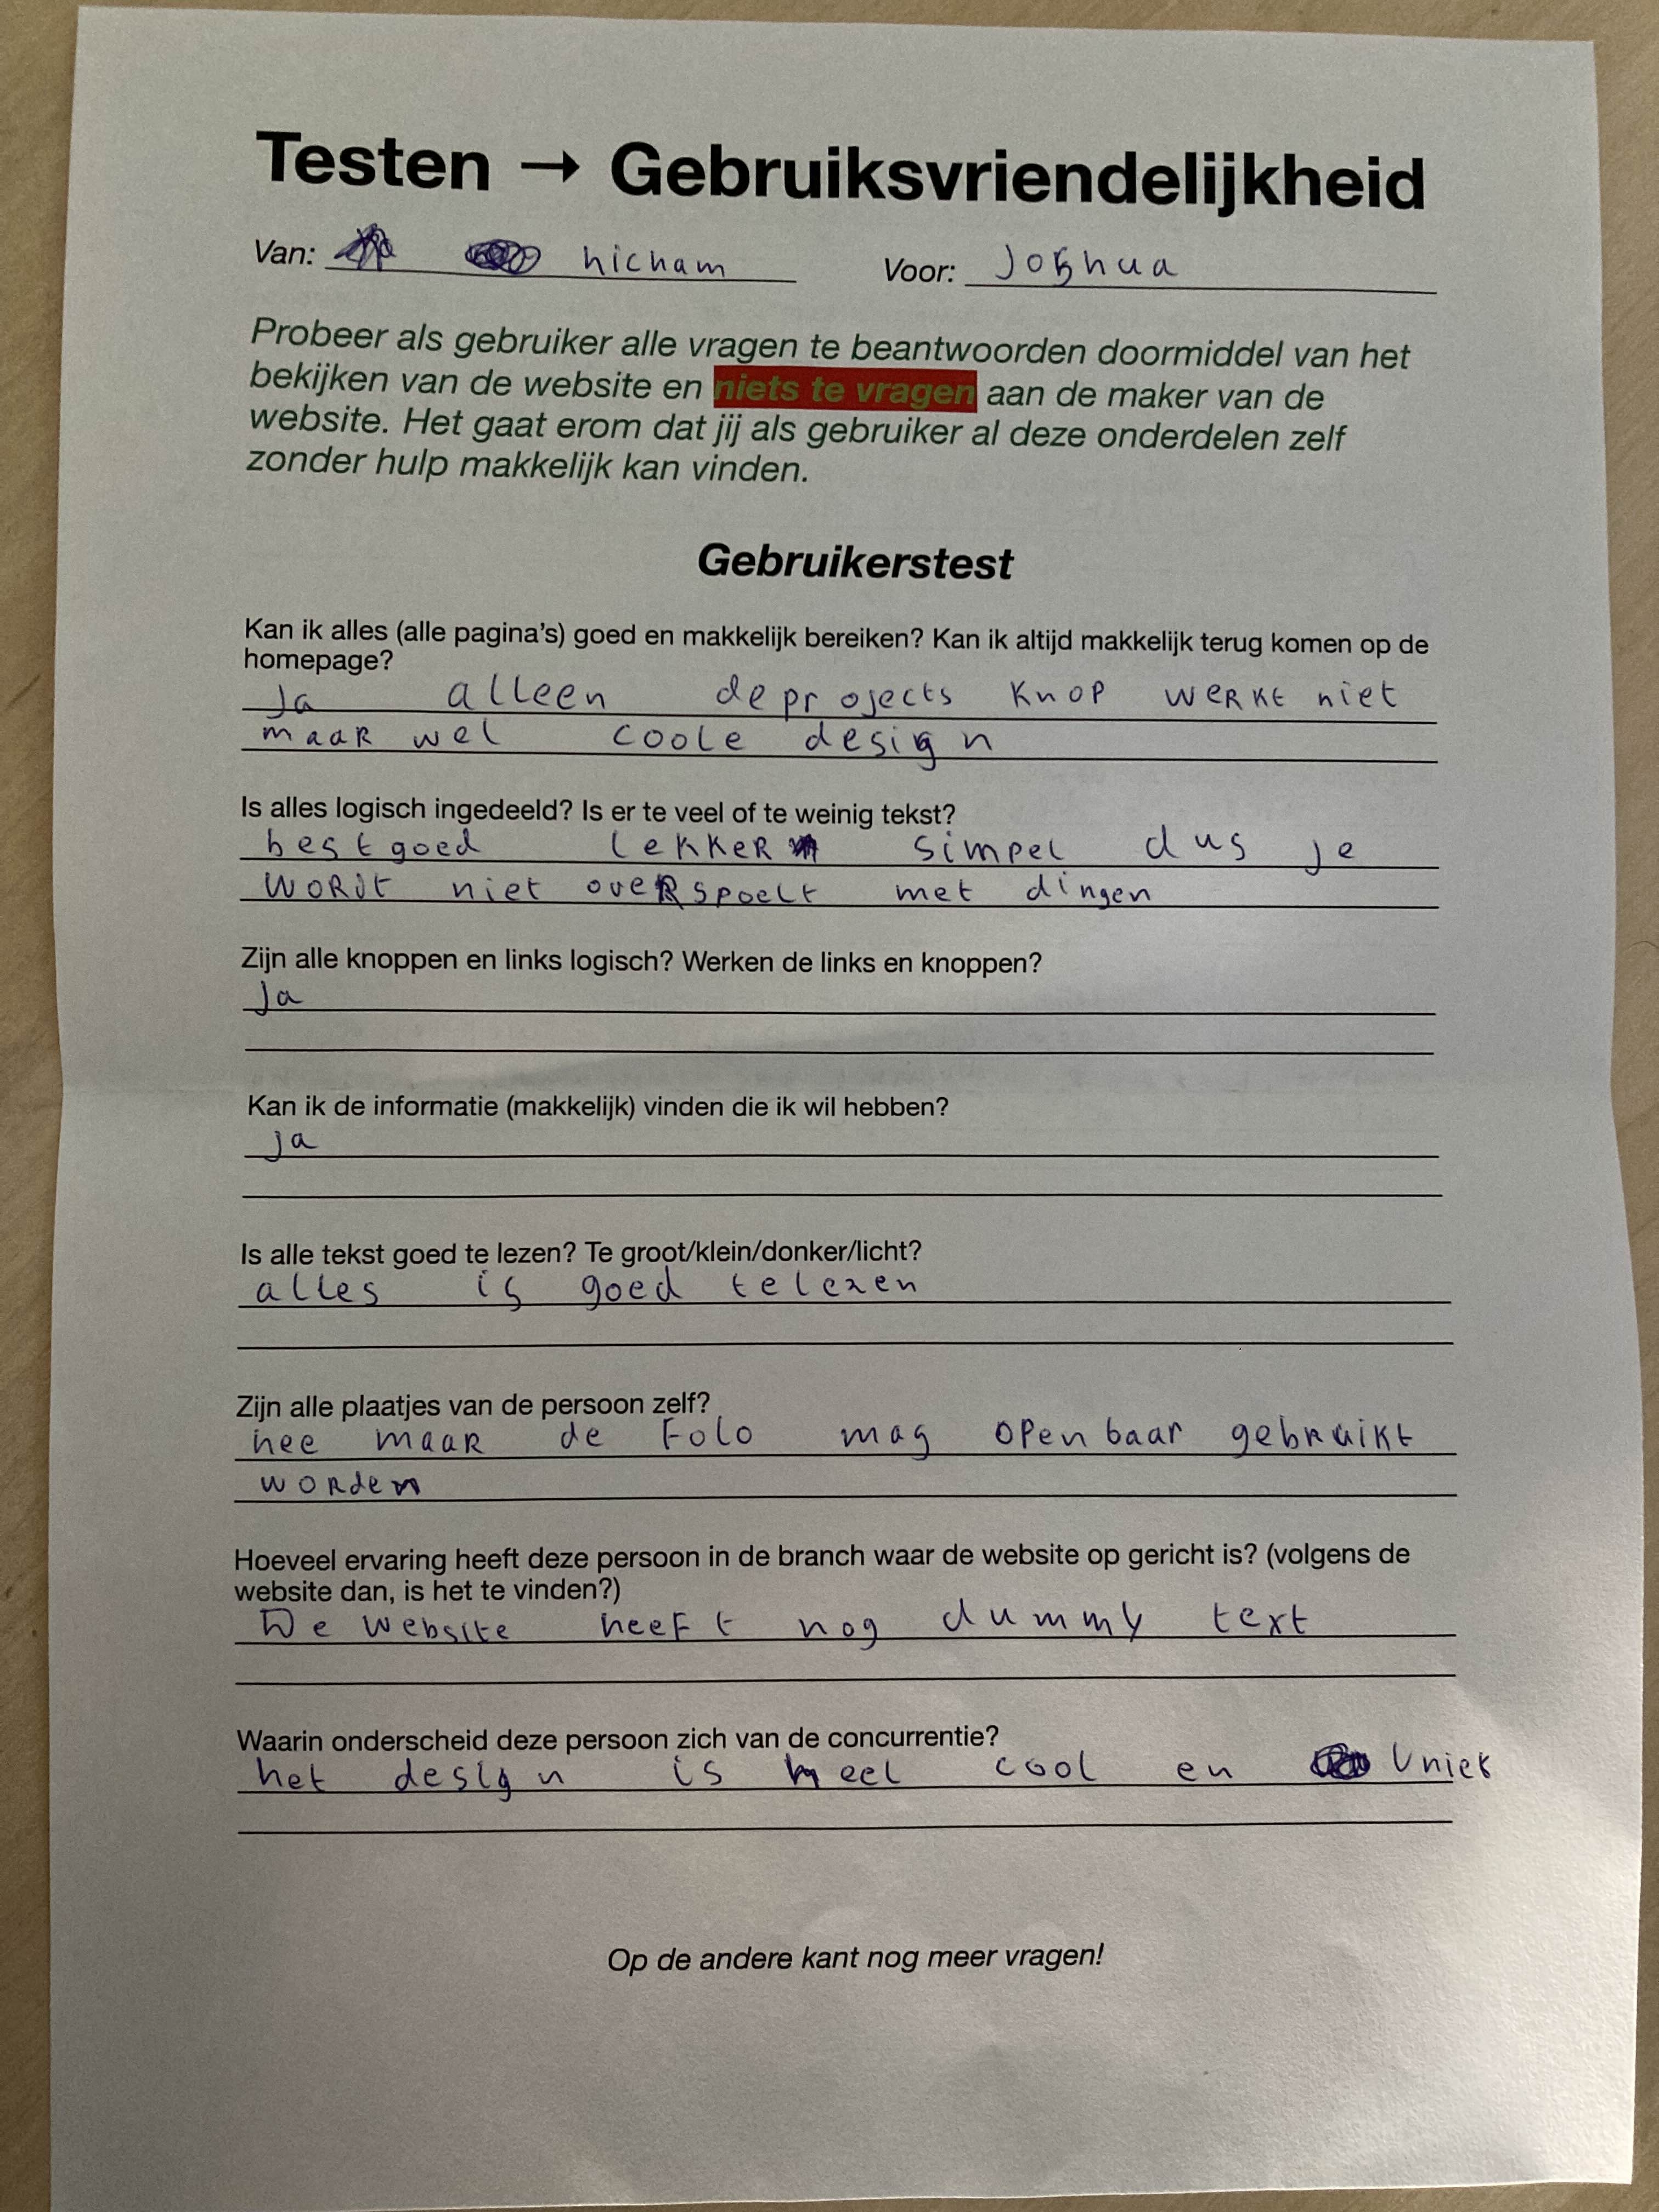 Testen → Gebruiksvriendelijkheid
Van: hicham Voor: Joshua
Probeer als gebruiker alle vragen te beantwoorden doormiddel van het
bekijken van de website en niets te vragen aan de maker van de
website. Het gaat erom dat jij als gebruiker al deze onderdelen zelf
zonder hulp makkelijk kan vinden.
Gebruikerstest
Kan ik alles (alle pagina's) goed en makkelijk bereiken? Kan ik altijd makkelijk terug komen op de
homepage?
Ja alleen de projects knop werkt niet
maar wel coole design
Is alles logisch ingedeeld? Is er te veel of te weinig tekst?
best goed lekker simpel dus je
wordt niet overspoelt met dingen
Zijn alle knoppen en links logisch? Werken de links en knoppen?
Ja
Kan ik de informatie (makkelijk) vinden die ik wil hebben?
ja
Is alle tekst goed te lezen? Te groot/klein/donker/licht?
alles is goed te lezen
Zijn alle plaatjes van de persoon zelf?
nee maar de foto mag openbaar gebruikt
worden
Hoeveel ervaring heeft deze persoon in de branch waar de website op gericht is? (volgens de
website dan, is het te vinden?)
De website heeft nog dummy text
Waarin onderscheid deze persoon zich van de concurrentie?
het design is heel cool en Uniek
Op de andere kant nog meer vragen!